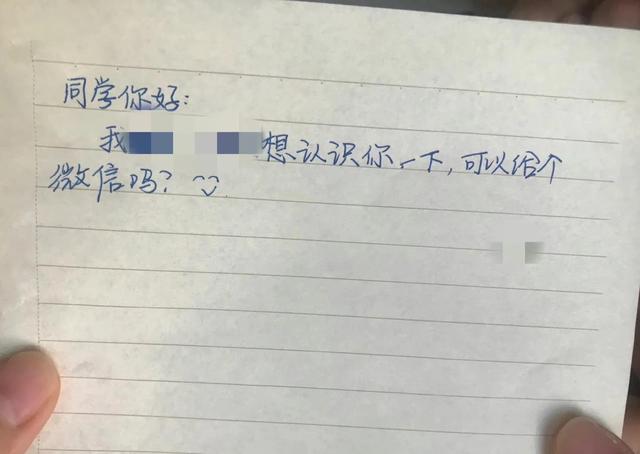 同学你好:
我 想认识你一下,可以给个
微信吗?